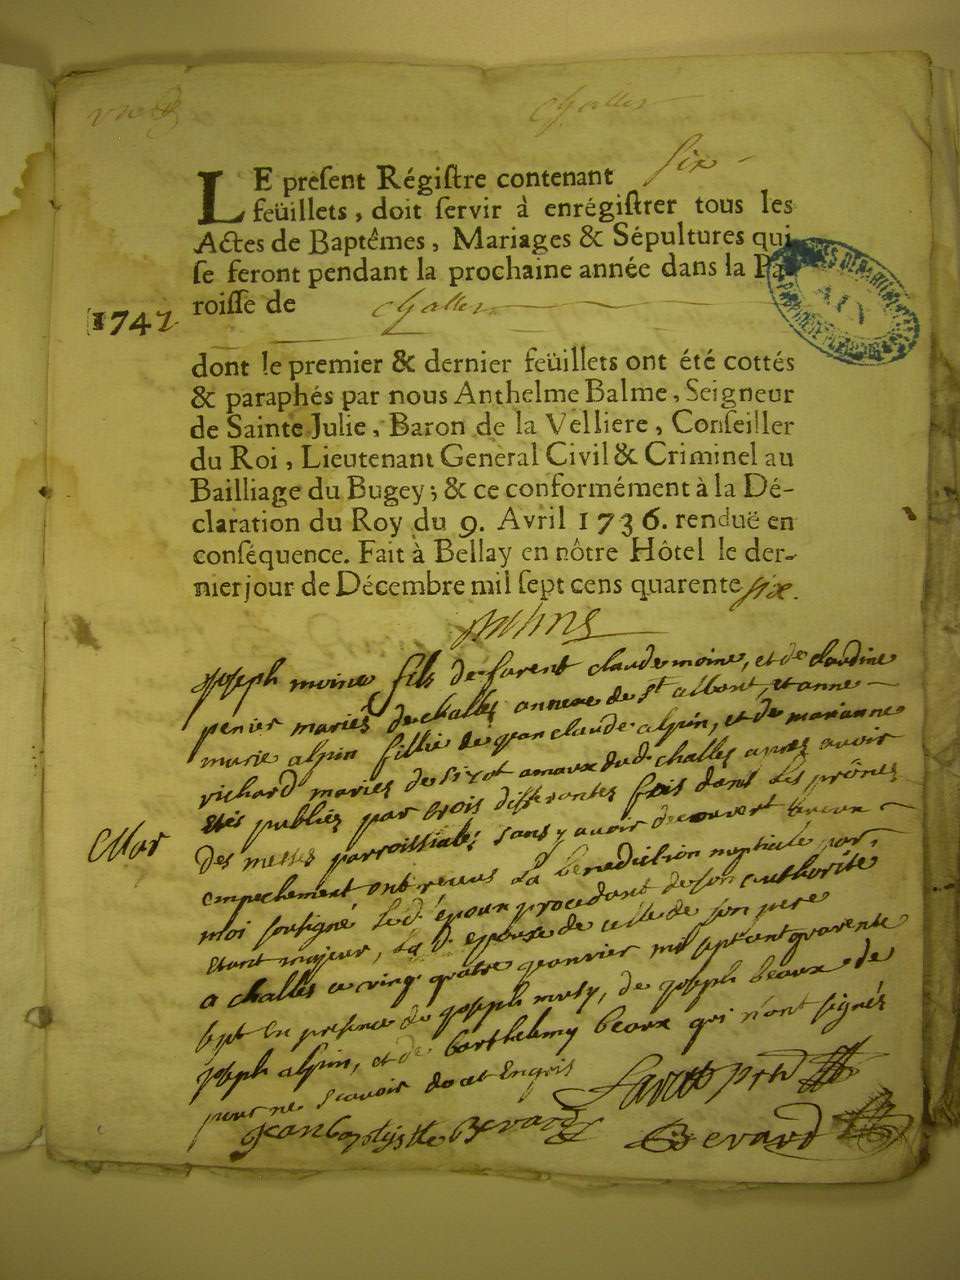 challes
LE présent Régistre contenant six
feüillets, doit servir à enrégistrer tous les
Actes de Baptêmes, Mariages & Sépultures qui
se feront pendant la prochaine année dans la Pa-
roisse de challes
1747
dont le premier & dernier feüillets ont été cottés
& paraphés par nous Anthelme Balme, Seigneur
de Sainte Julie, Baron de la Velliere, Conseiller
du Roi, Lieutenant General Civil & Criminel au
Bailliage du Bugey; & ce conformément à la Dé-
claration du Roy du 9. Avril 1736. renduë en
conséquence. Fait à Bellay en nôtre Hôtel le der-
nier jour de Décembre mil sept cens quarente six.
joseph moine fils de claude moine, et de claudine
penier mariés de challes annexe de st albant, et anne
marie alpin fillie de jean claude alpin, et de marianne
richard maries de dud. challes apres avoir
etés publies par trois differantes fois dans les prônes
Mar
des messes parroissiales sans y avoir decouvert aucun
empechement ont receus la benediction nuptiale par
moi soussigné led. epoux procedant de son authorite
etant majeur, la d. epouse de celle de son pere
a challes ce vingt quatre jeanvier mil sept cent quarente
sept en presence de joseph de joseph beaux de
joseph alpin, et de barthelemy beaux qui n'ont signés
pour ne scavoir de ce enquis
jean baptiste Bevard
Bevard